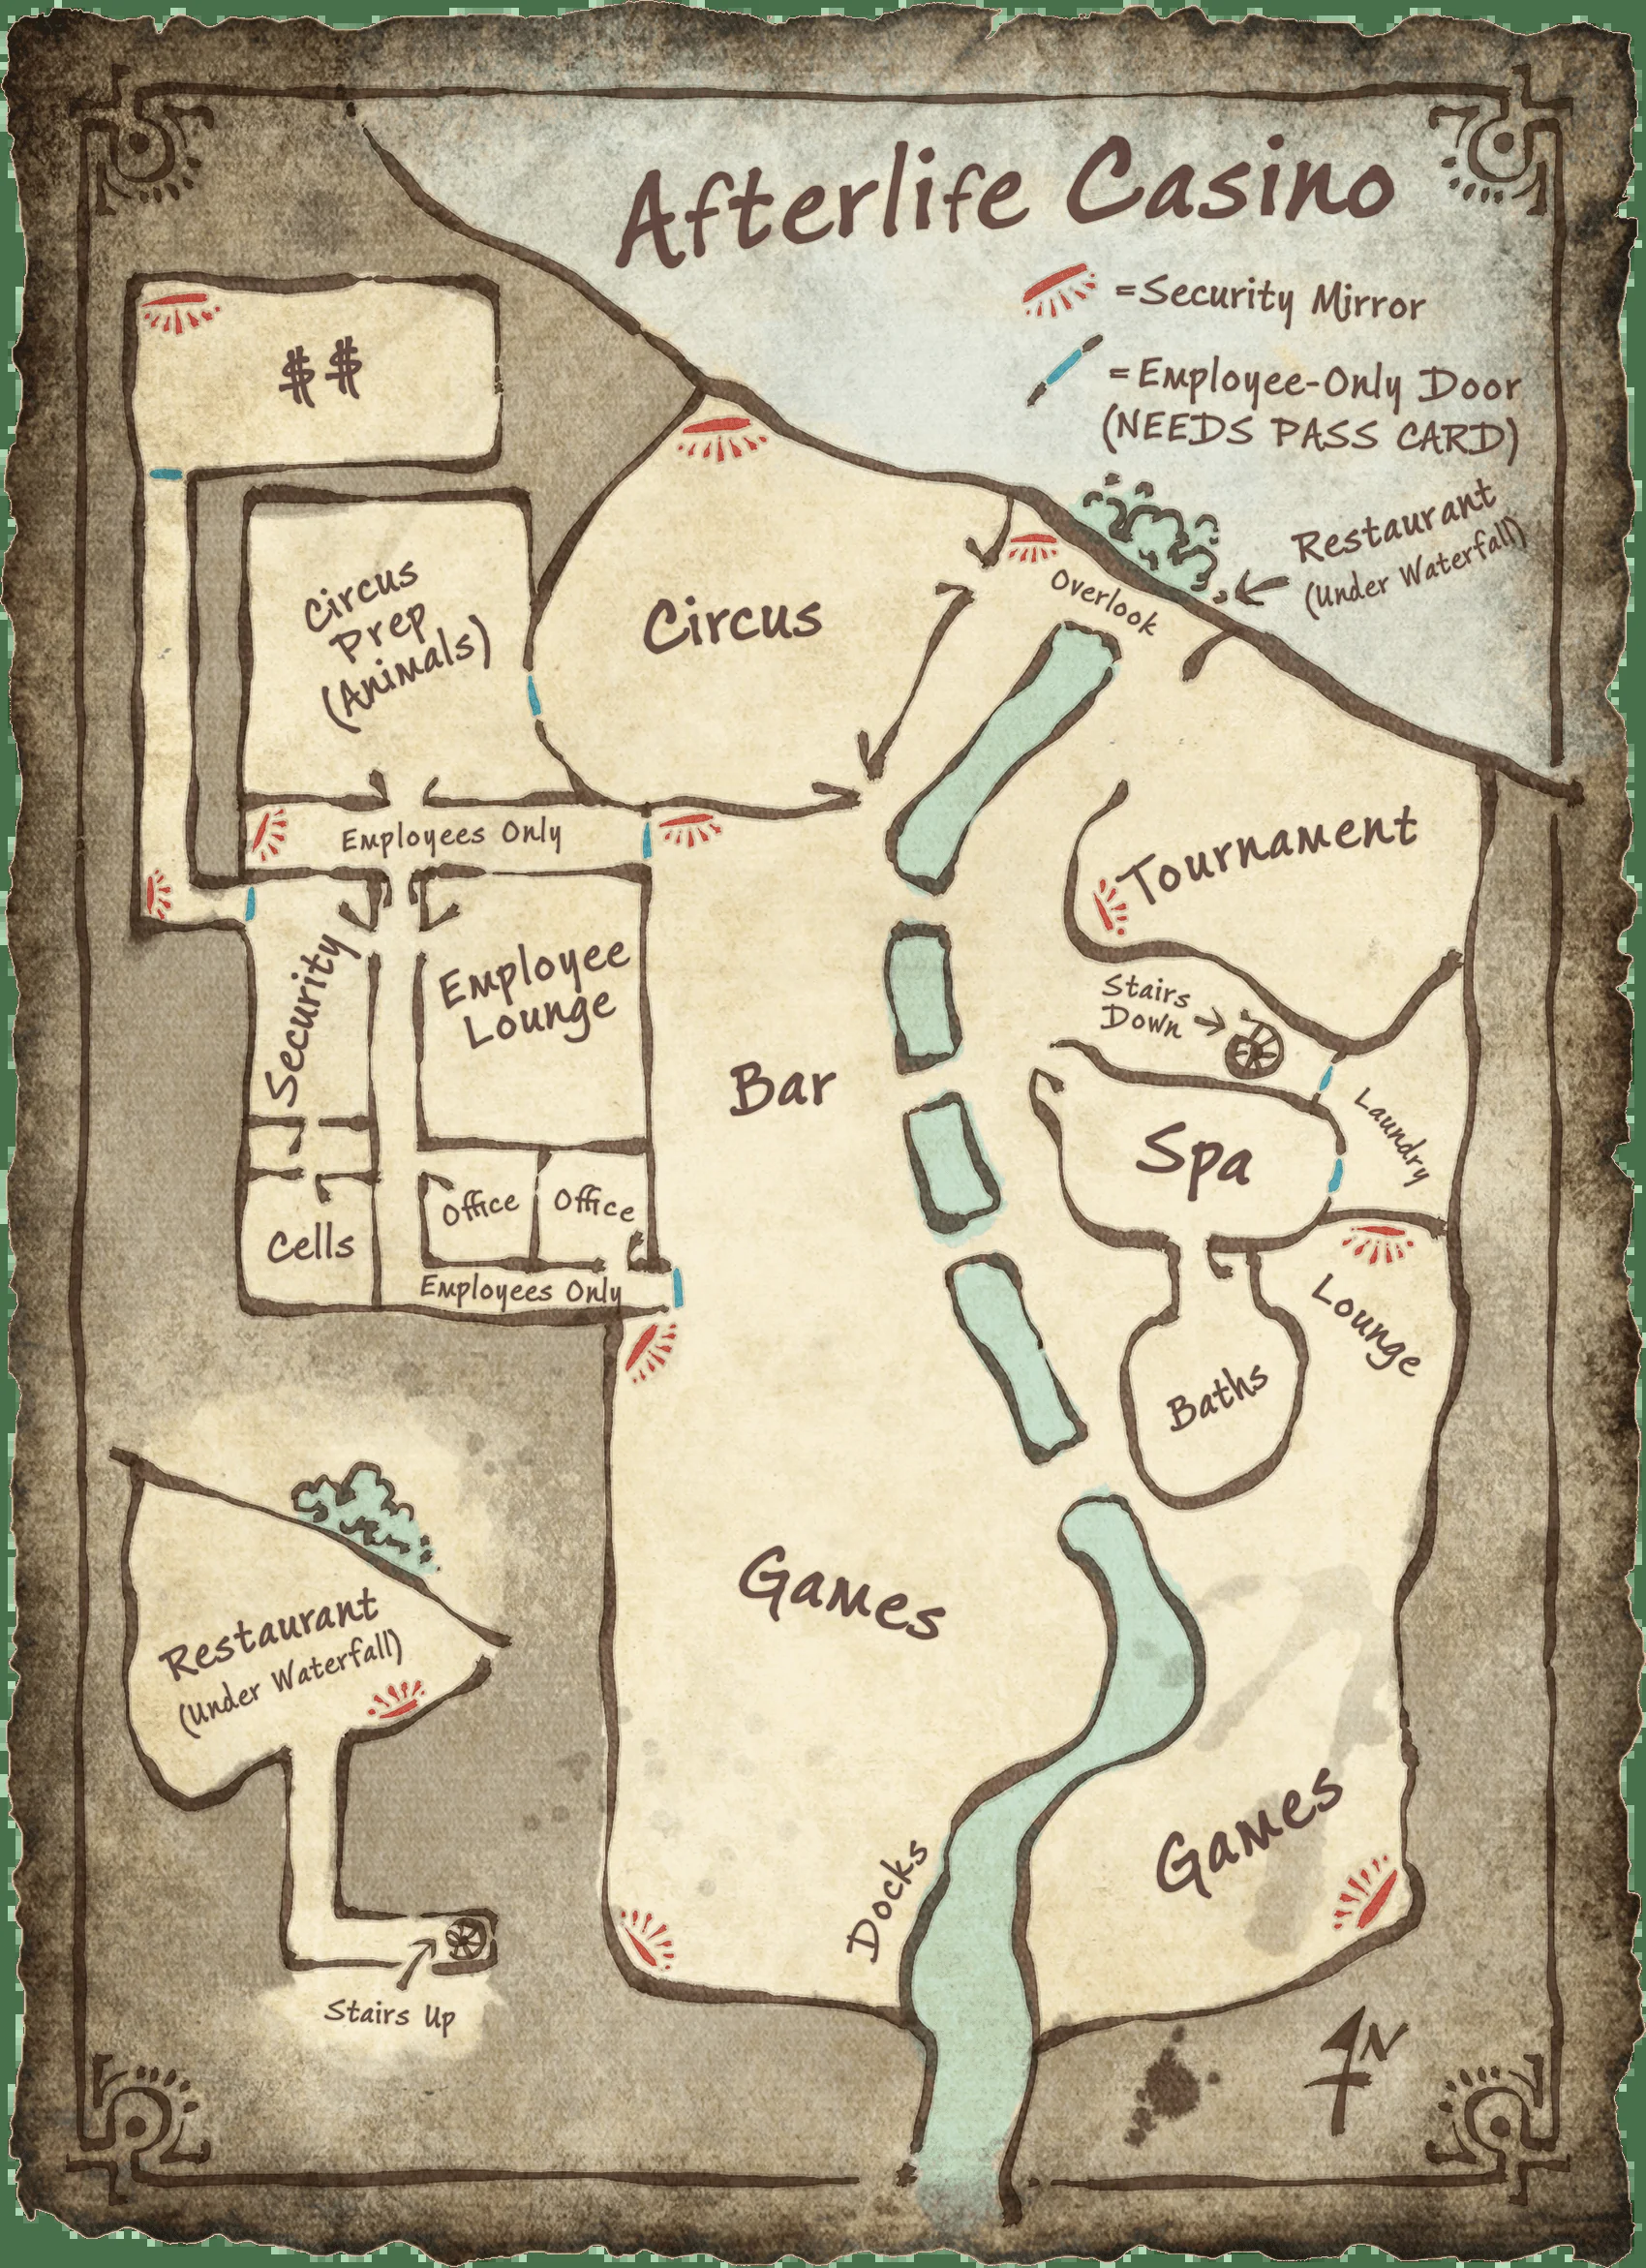 Afterlife Casino
=Security Mirror
=Employee-Only Door
(NEEDS PASS CARD)
$$
Restaurant
(Under Waterfall)
Overlook
Circus
Prep
(Animals)
Circus
Employees Only
Tournament
Security
Employee
Lounge
Stairs
Down
Bar
Laundry
Spa
Office
Office
Cells
Employees Only
Lounge
Baths
Games
Restaurant
(Under Waterfall)
Games
Docks
Stairs Up
N